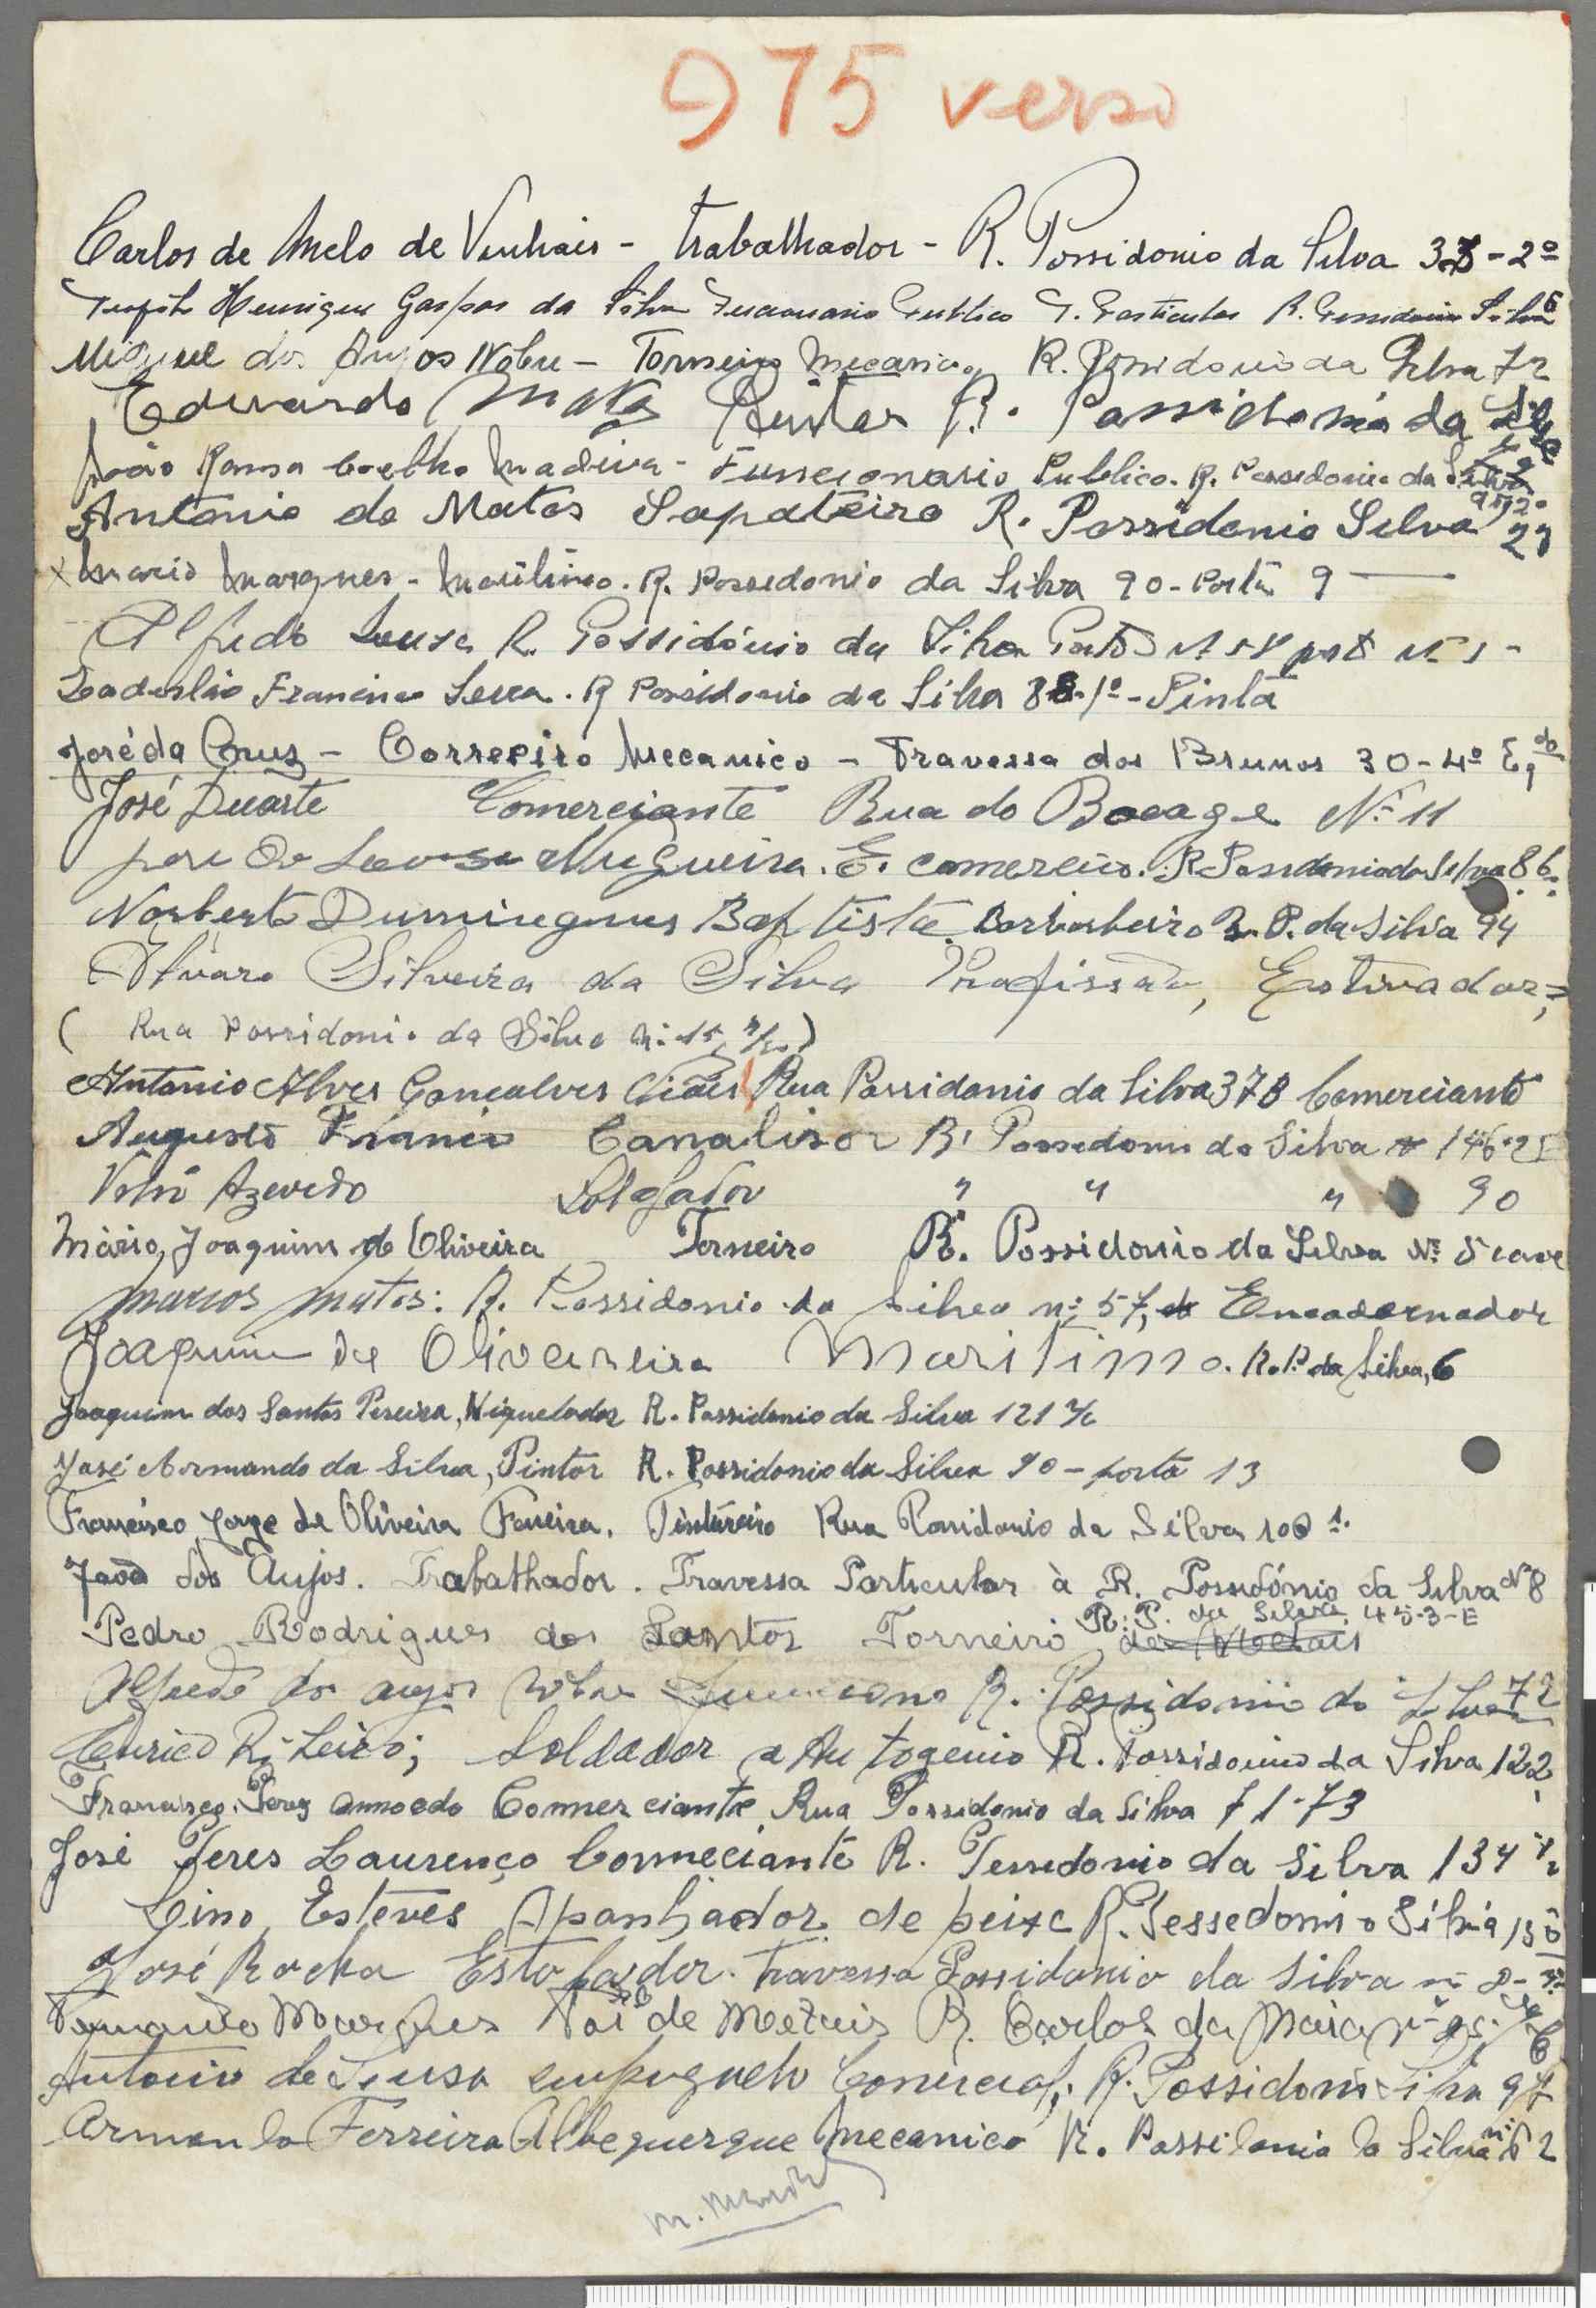 975 verso
Carlos de Melo de Vinhais - trabalhador - R. Possidonio da Silva 37-2º
Henrique Gaspar da Silva Funcionario Publico T. Particular R. Possidonio Silva 6
Miguel dos Anjos Nobre - Torneiro Mecanico R. Possidonio da Silva 72
Eduardo Matos Pintor R. Possidonio da Silva
João Ramsa Coelho Madeira - Funcionario Publico. R. Possedonio da Silva
Antonio de Matos Sapateiro R. Possidonio Silva 27
x Mario Marques - Maritimo. R. Possedonio da Silva 90 - Porta 9
Alfredo Sousa R. Possidónio da Silva
Francisco Serra. R Possidonio da Silva 88-1º - Pinta
José da Cruz - Correeiro Mecanico - Travessa dos Brunos 30-4º Eqdo
José Duarte Comerciante Rua do Bocage Nº 11
Nugueira. E. comercio. R Possidonio da Silva 86
Norberto Dumingues Baptista Barbarbeiro R. P. da Silva 94
Alvaro Silveira da Silva Profissão, Estivador,
( Rua Possidonio da Silva nº 15, r/c)
Antonio Alves Gonçalves Rua Possidonio da Silva 37B Comerciante
Augusto Francio Canalisor R. Possedonio da Silva 146-2E
Azevedo " " " 90
Mário Joaquim de Oliveira Torneiro R. Possidonio da Silva Nº 5 cave
Marcos Matos: R. Possidonio da Silva nº 57, Encadernador
Joaquim de Oliveira Maritimo. R. P. da Silva, 6
Joaquim dos Santos Pereira, Niquelador R. Possidonio da Silva 121 r/c
José Normando da Silva, Pintor R. Possidonio da Silva 90 - porta 13
Francisco Jorge de Oliveira Ferreira. Tintureiro Rua Possidonio da Silva 100 1.
João dos Anjos. Trabalhador. Travessa Particular à R. Possidónio da Silva Nº 8
Pedro Rodrigues dos Santos Torneiro de Metais R. P. da Silva 45-3-E
Alfredo dos anjos Nobre R. Possidonio da Silva 72
Eurico Ribeiro; Soldador a Autogenio R. Possidonio da Silva 122
Francisco Perez Annoedo Commerciante Rua Possidonio da Silva 71-73
José Peres Laurenço Commeciante R. Possedonio da Silva 134
Lino Esteves Apanhador de peixe R. Possedonio Silvia
José Rocha Estofador. Travessa Possidonio da Silva nº 8
Fernando Marques de Metais R. Carlos da Maia
Antonio de Sousa empregado Comercial; R. Possidonio Silva 97
Armando Ferreira Albequerque Mecanico R. Possidonio da Silva nº 62